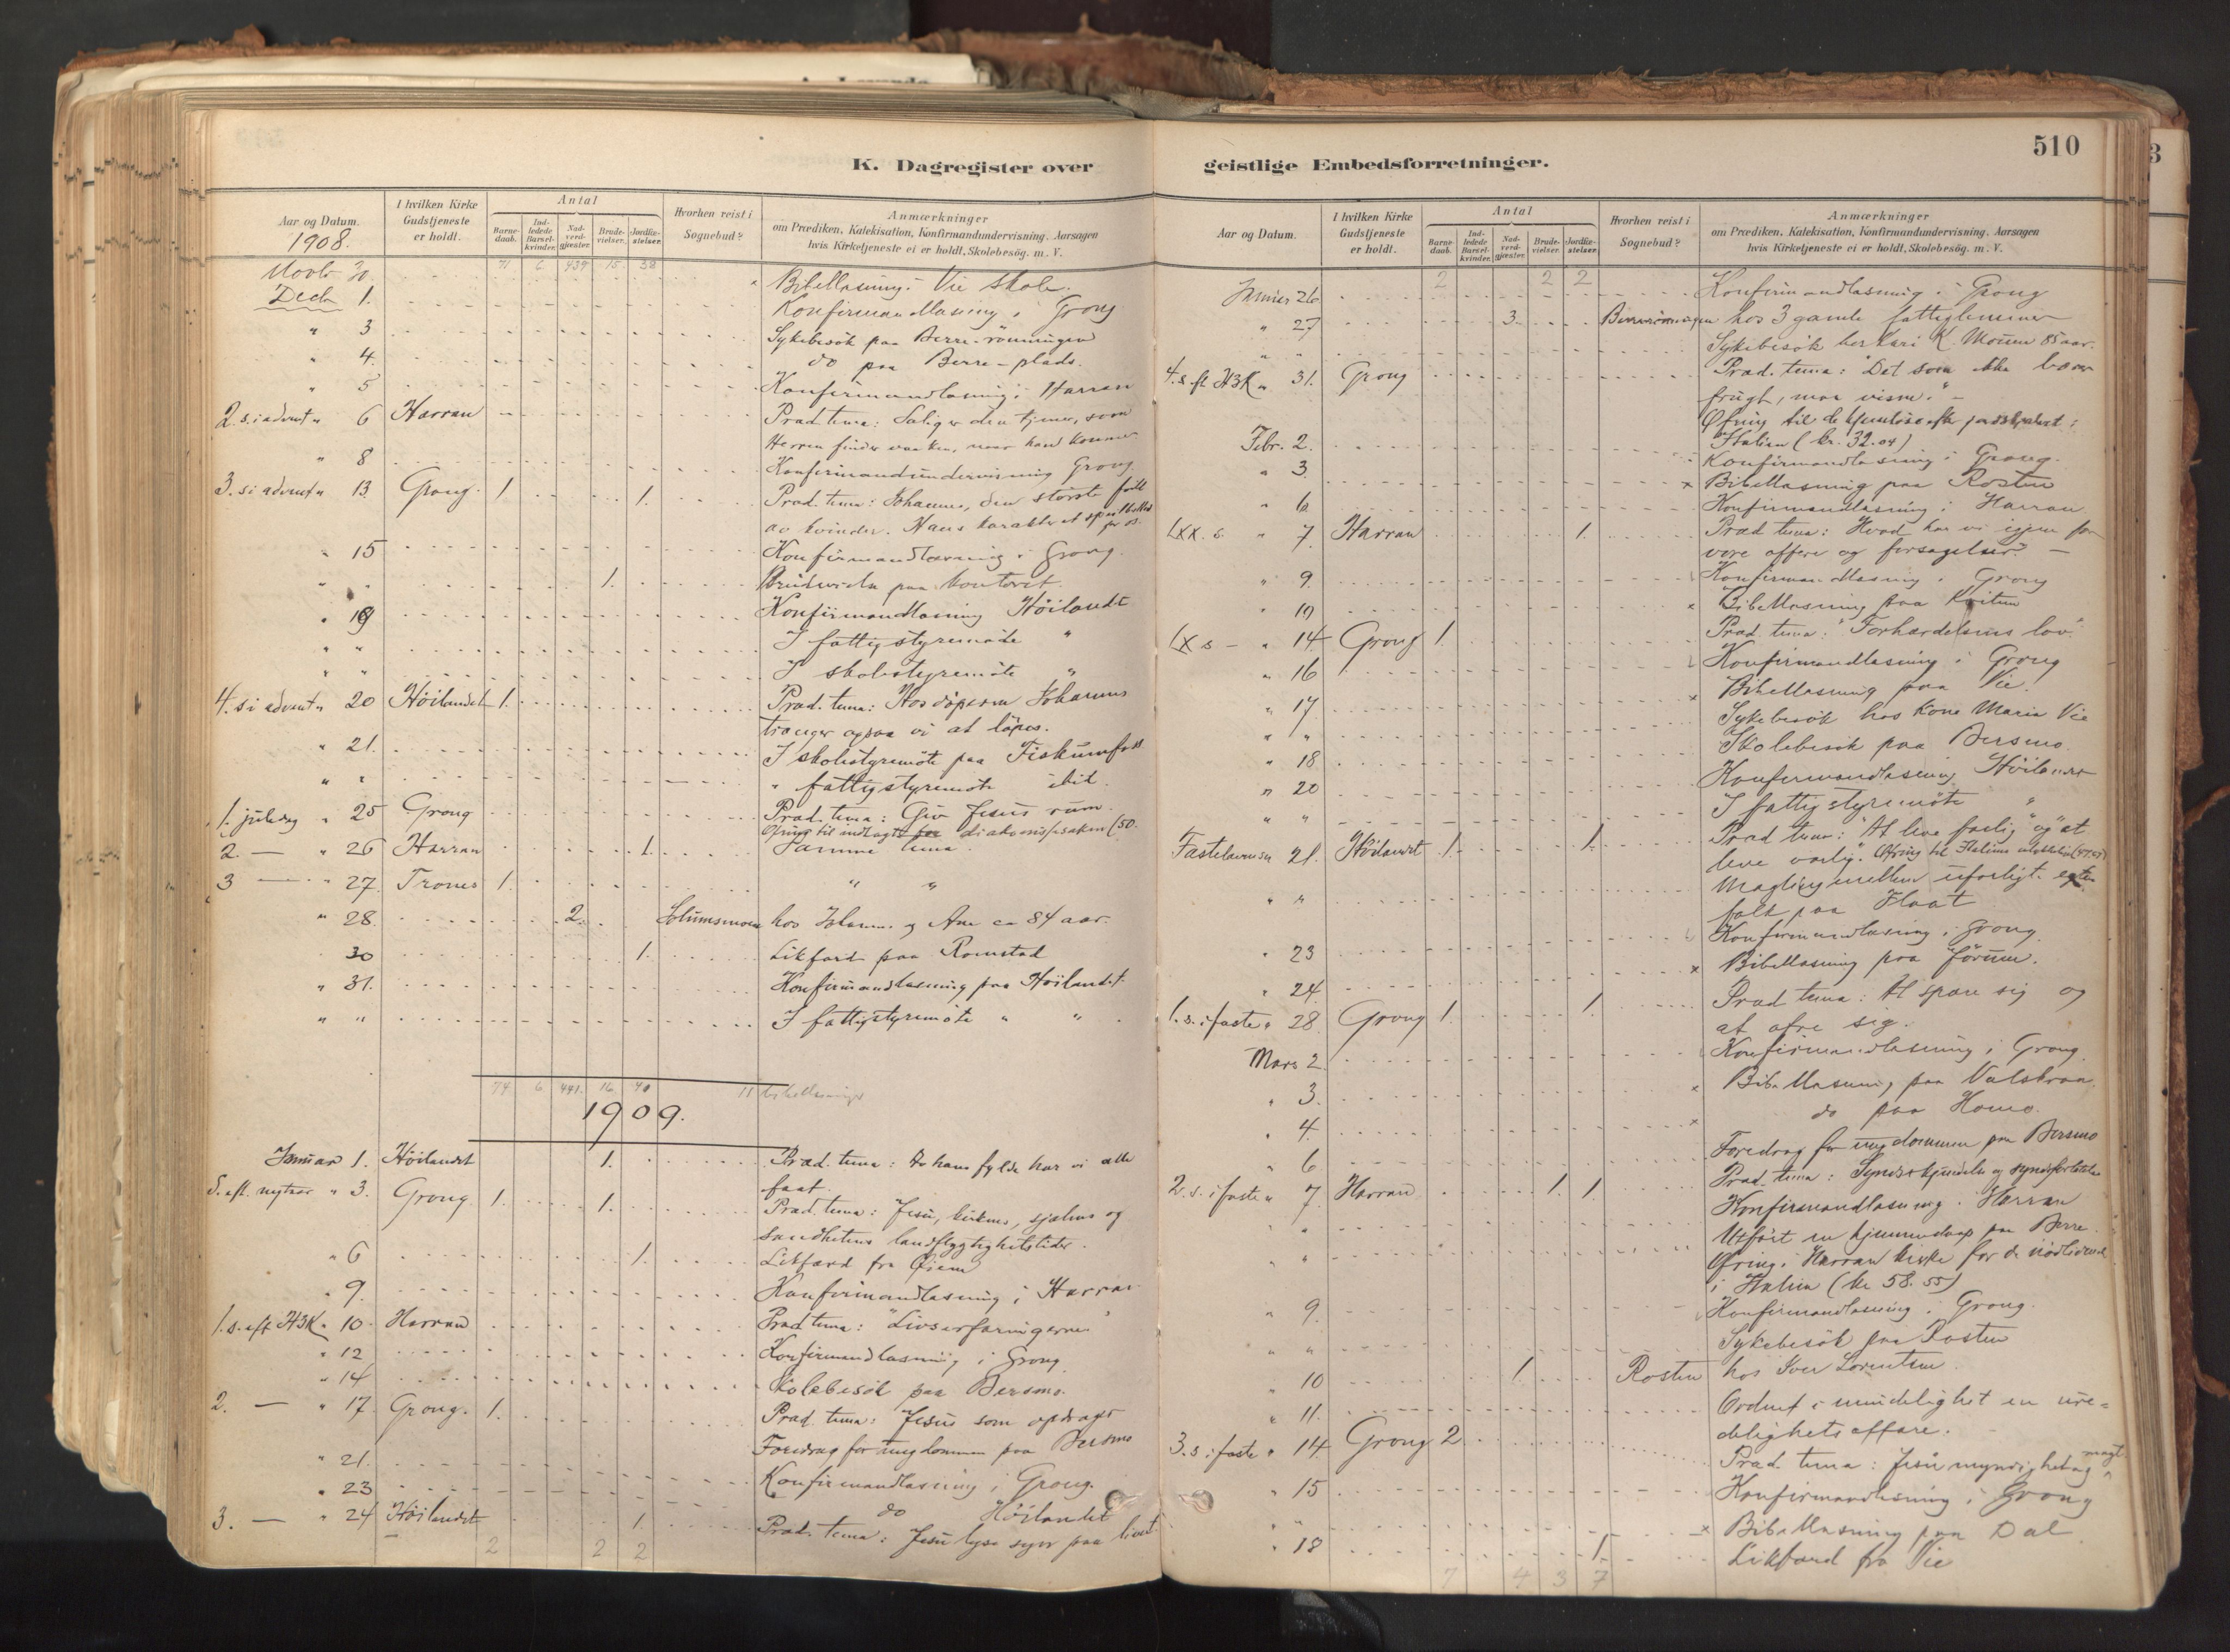 510
K. Dagregister over geistlige Embedsforretninger.
Aar og Datum. 1908.
I hvilken Kirke Gudstjeneste er holdt.
Antal
Barne-daab.
Ind-ledede Barsel-kvinder.
Nad-verd-gjæster.
Brude-vielser.
Jordfæ-stelser.
Hvorhen reist i Sognebud?
Anmærkninger
om Prædiken, Katekisation, Konfirmandundervisning. Aarsagen
hvis Kirketjeneste ei er holdt, Skolebesøg. m. V.
Novbr 30. 71 6 439 15 38 Bibellæsning. Vie skole.
Decbr 1. Konfirmandlæsning i Grong
" 3 Sykebesök paa Berre-rönningen
" 4. do paa Berre-plads.
" 5 Konfirmandlæsning i Harran
2. s. i advent " 6 Harran Præd. tema: Salig er den tjener, som
Herren finder vaaken, naar han kommer
" 8 Konfirmandundervisning Grong.
3. s. i advent " 13. Grong. 1 1. Præd. tema: Johannes, den störste födt
av kvinder. Hans karakter et for os.
" 15 Konfirmandlæsning i Grong.
" " 1. Brudevielse paa kontoret.
" 19 Konfirmandlæsning Höilandet
" " I fattigstyremöte "
" " I skolestyremöte "
4. s. i advent " 20 Höilandet 1. Præd. tema: Hos döperen Johannes
trænger ogsaa vi at
" 21. I skolestyremöte paa Fiskumfoss
" " " fattigstyremöte ibid.
1. juledag " 25 Grong Præd. tema: Giv Jesus rum.
Ofring til indtægt for diakonissesaken (50.
2. — " 26 Harran 1. Samme tema.
3 — " 27. Trones 1. " "
" 28. 2. Solumsmoen hos og Ane ca 84 aar.
30 1. Likfærd paa Romstad
" 31. Konfirmandlæsning paa Höilandet.
" " I fattigstyremöte " "
74 6 441. 16 40 11 bibellæsninger
1909.
Januar 1. Höilandet 1. Præd. tema: Av hans fylde har vi alle
faat.
S. eft. nytaar " 3. Grong. 1. 1. Præd. tema: Jesu, kirkens, sjælens og
sandhetens landflygtighetstider.
" 6 1. Likfærd fra Öiem
" 9. Konfirmandlæsning i Harran
1. s. eft H3K " 10. Harran Præd tema: "Livserfaringerne"
" 12 Konfirmandlæsning i Grong.
" 14 Skolebesök paa Bersmo.
2. — " 17. Grong. 1. Præd. tema: Jesus som opdrager
" 21. Foredrag for ungdommen paa Bersmo
" 23 Konfirmandlæsning i Grong.
do Höilandet
3. — " 24 Höilandet 1 Præd. tema: Jesu lyse syn paa livet
2 2 2
Aar og Datum.
I hvilken Kirke Gudstjeneste er holdt.
Antal
Barne-daab.
Ind-ledede Barsel-kvinder.
Nad-verd-gjæster.
Brude-vielser.
Jordfæ-stelser.
Hvorhen reist i Sognebud?
Anmærkninger
om Prædiken, Katekisation, Konfirmandundervisning. Aarsagen
hvis Kirketjeneste ei er holdt, Skolebesög. m. V.
2 2 2
Januar 26. Konfirmandlæsning i Grong
" 27 3. hos 3 gamle fattiglemmer
" " Sykebesök hos Kari K. Moum 85 aar.
4. s. ft H3K " 31. Grong Præd. tema: "Det som ikke bærer
frugt, maa visne."
Ofring til de hjemlöse efter jordskjælvet i
Italien (kr. 32.04)
Febr. 2. Konfirmandlæsning i Grong.
" 3. x Bibellæsning paa Rosten
" 6 Konfirmandlæsning i Harran.
Lxx. s. " 7. Harran 1. Præd tema: Hvad har vi igjen for
vore offere og forsagelser? —
" 9. Konfirmandlæsning i Grong
" 10 x Bibellæsning paa
Lx s — " 14 Grong 1. Præd. tema: "Forhærdelsens lov."
" 16 Konfirmandlæsning i Grong
" 17. x Bibellæsning paa Vie.
" " Sykebesök hos Kone Maria Vie
" 18 Skolebesök paa Bersmo.
" 20 Konfirmandlæsning Höilandet
" " I fattigstyremöte "
Fastelavnss. 21. Höilandet 1. 1. Præd tema: "At leve farlig" og "at
leve varlig". Ofring til Italiens
" " Mægling mellem uforligt. egte
folk paa Flaat
" 23 Konfirmandlæsning i Grong.
" 24. x Bibellæsning paa
1. s. i faste " 28. Grong 1. 1. Præd tema: At spare sig og
at ofre sig.
Mars 2. Konfirmandlæsning i Grong.
" 3. x Bibellæsning paa
" 4. x do paa Homo.
" 6 Foredrag for ungdommen paa Bersmo
2. s. i faste " 7. Harran 1. 1. Præd. tema: Synderkjendelse og syndsforlatelse
" Konfirmandlæsning. Harran
" " Utfört en hjemmedaap paa Berre.
Ofring i Harran kirke for de nödlidende
i Italien (kr 58.55)
" 9. Konfirmandlæsning i Grong.
" " Sykebesök paa Rosten
" 10 1. Rosten hos Iver Lorentsen.
" 11. Ordnet i mindelighet en ure-
delighetsaffære.
3. s. i faste " 14. Grong 2 Præd tema: Jesu myndighet og magt
" 15 Konfirmandlæsning i Grong
" x Bibellæsning paa Dal
" 18 1. Likfærd fra Vie
7 4 3 7